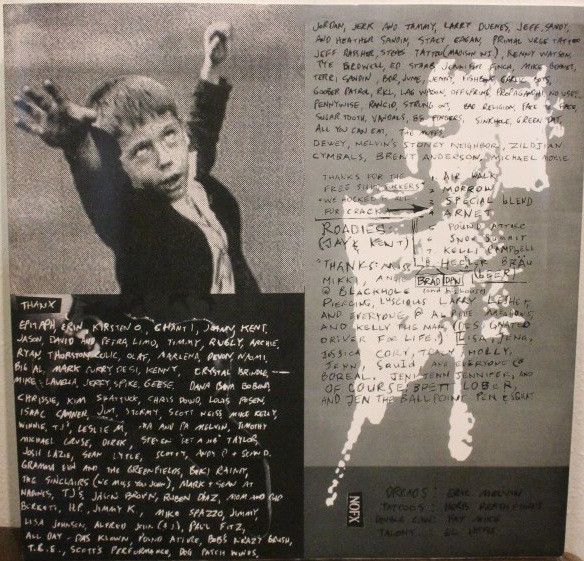 THANX
EPITAPH, ERIN, KIRSTEN O., CHANTI, JOHNNY, KENT,
JASON, DAVID AND PETRA LIMO, TIMMY, RUBEY, ARCHIE,
RYAN THORSTON, OLAF, MARLENA, DEVON, NAOMI,
BIG AL, MARK CURRY, DESI, KENNY, CRYSTAL
MIKE LAVELLA, JERRY, SPIKE, GEESE, DANA
CHRISSIE, KIM SHATTUCK, CHRIS DOWD, LOUIS POSEN,
ISAAC JIM, STORMY, SCOTT WEISS, MIKE KELLY,
WINNIE, TJ'S, LESLIE M., MA AND PA MELVIN, TIMOTHY
MICHAEL CRUSE, DIRK, STEVEN TAYLOR,
JOSH LAZIE, SEAN LYTLE, SCOTT, ANDI P + SEAN D.
GRAMMA EVN AND THE GREENFIELDS, BEKI RAINY,
THE SINCLAIRS (WE MISS YOU JOHN), MARK + SEAN AT
NADINES, TJ'S, JASON BROWN, RUBEN DIAZ, MOM AND DAD
BURKETT, H.P., JIMMY K., MIKE SPAZZO, JIMMY,
LISA JOHNSON, ALFRED JOHN (AJ), PAUL FITZ,
ALL DAY - DAS KLOWN, POUND ATTIRE, BOB'S KRAZY BRUSH,
T.B.E., SCOTT'S PERFORMANCE, DOG PATCH WINOS,
JORDAN, JERK AND TAMMY, LARRY DUENES, JEFF, SANDY,
AND HEATHER SANDIN, STACY EGAN PRIMAL URGE TATTOO
JEFF RASSHER, STEVES TATTOO (MADISON WI), KENNY WATSON,
TYE BIRDWELL, ED STAAB, JENNIFER FINCH, MIKE
TERRI SANDIN, BOB, JUNE, JENNY, FISHBONE,
GOOBER PATROL, RKL, LAG WAGON, OFFSPRING, PROPAGANDHI, NO USE..
PENNYWISE, RANCID, STRUNG OUT, BAD RELIGION, FACE TO FACE,
SUGAR TOOTH, VANDALS, BIG FINGERS, SINKHOLE, GREEN DAY,
ALL YOU CAN EAT, THE MUFFS
DEWEY, MELVIN'S STONEY NEIGHBOR, ZILDJIAN
CYMBALS, BRENT ANDERSON, MICHAEL MOXIE
THANKS FOR THE
FREE SHIT, SUCKERS
WE HOCKED IT ALL
FOR CRACK
1 AIR WALK
2 MORROW
3 SPECIAL BLEND
4 ARNET
5 POUND ATTIRE
6 SNOW SUMMIT
7 KELLI CAMPBELL
8 HECKER BRÄU
(BEER)
ROADIES
(JAY & KENT)
THANKS MISS
BRAD DAN
MIKKI, ANNE
@ BLACKHOLE
PIERCING, LUSCIOUS LARRY
AND EVERYONE @ ALPINE MEADOWS,
AND KELLY THE MAN (DESIGNATED
DRIVER FOR LIFE,) LISA, JENA,
JESSICA CORY, TOMMY, HOLLY,
JENN, SQUID AND EVERYONE @
BOREAL, JENI JENN JENNIFER, AND
OF COURSE BRETT LOBER,
AND JEN THE BALLPOINT PEN & SQUAT
NOFX
DREADS: ERIC MELVIN
TATTOOS:
DOUBLE CHIN: FAT MIKE
TALENT: EL HEFE